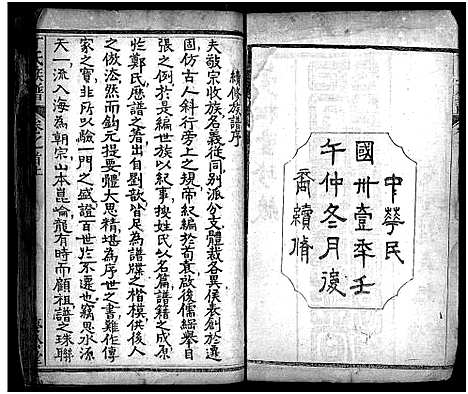 中華民
國卅壹年壬
午仲冬月後
裔續脩
續修族譜序
夫敬宗收族名義徒同別派分支體裁各異侯表創於遷
固仿古人斜行旁上之規帝紀編於荀袁啟後儒綱舉目
張之例於是編世族以紀事換姓氏以名篇譜籍之成原
於鄭氏厯譜之著出自劉歆皆足為譜牒之楷模供後人
之倣渁然而鈎元提要體大思精堪為序世之書難作傳
家之寶非所以驗一門之盛證百世於不遷也竊思水源
天一流入海為朝宗山本崑崙龍有時而顧祖譜之珠聯
氏族譜